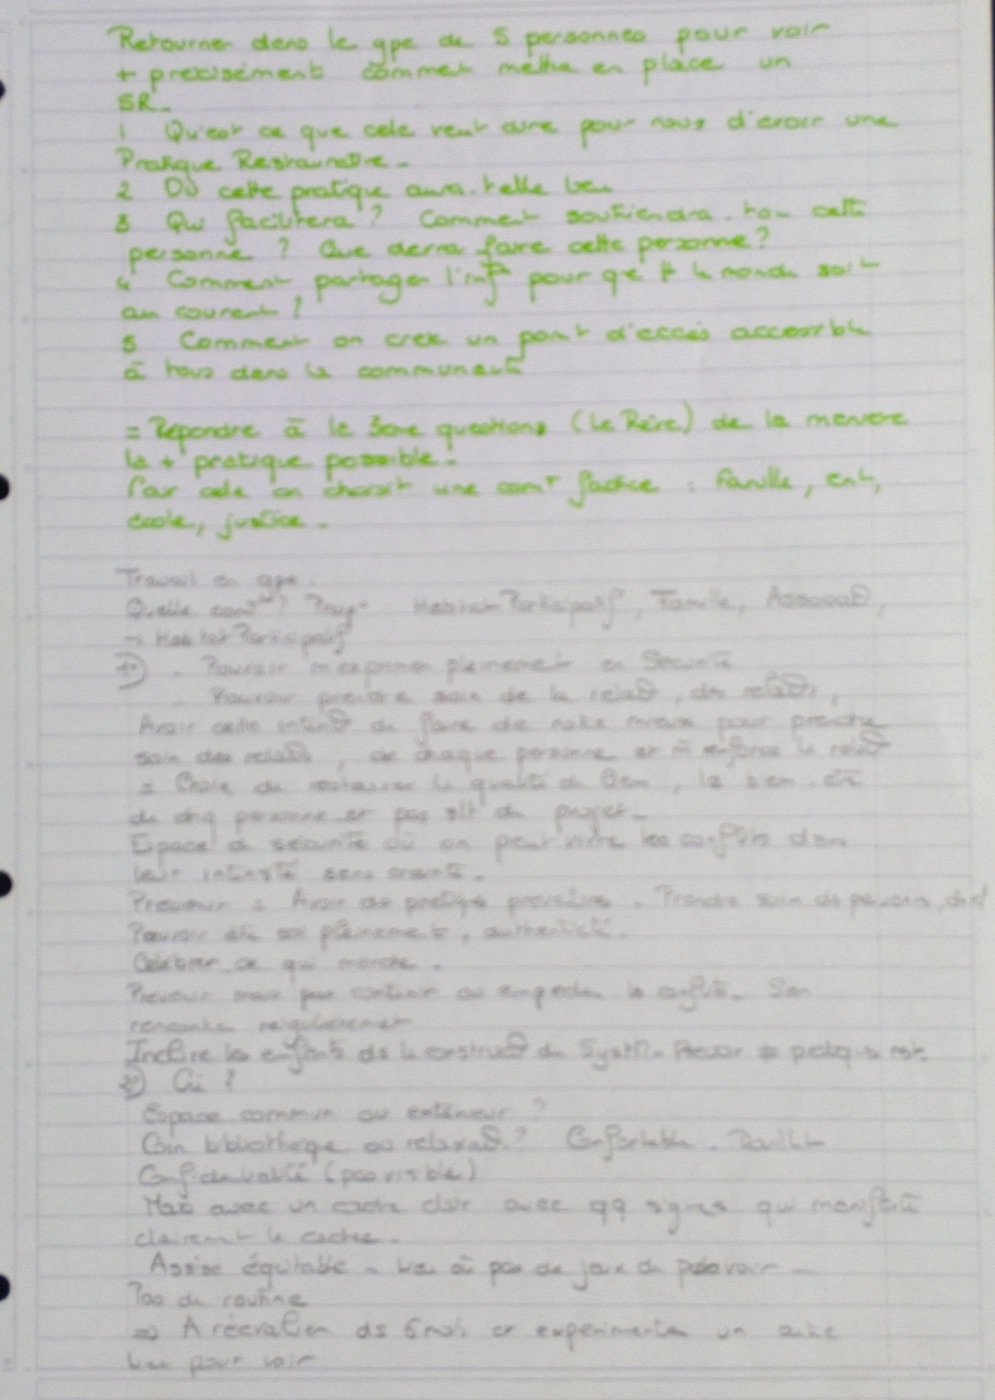 Retourner dans le gpe de 5 personnes pour voir
+ précisément comment mettre en place un
SR.
1 Qu'est ce que cela veut dire pour nous d'avoir une
Pratique Restaurative.
2 Où cette pratique aura-t-elle lieu
3 Qui facilitera ? Comment soutiendra-t-on cette
personne ? Que devra faire cette personne ?
4 Comment partager l'inf° pour que tt le monde soit
au courant ?
5 Comment on crée un point d'accès accessible
à tous dans la communauté
= Répondre à questions de la manière
la + pratique possible !
Pour cela on choisit une comt factice : famille, ent,
école, justice.
Travail en gpe.
Quelle comté ? Habitat Participatif, Famille,
→ Habitat Participatif
1°) - Pouvoir m'exprimer pleinement en Sécurité
- Pouvoir prendre soin de la relat°, des relat°s,
Avoir cette intent° de faire de notre mieux pour prendre
soin des relat°s, de chaque personne et la relat°
= Choix de restaurer la qualité du lien, le bien-être
de chq personne et pas slt du projet.
Espace de sécurité où on peut vivre les conflits dans
leur intensité sans crainte.
Prévenir = Avoir des Prendre soin de
Pouvoir être soi pleinement, authenticité.
Célébrer ce qui marche.
Prévenir mais pas contenir ou empêcher le conflit. Sen
rencontrer régulièrement
Inclure les enfants ds la construct° du Syst.
2°) Où ?
Espace commun ou extérieur ?
Coin bibliothèque ou relaxat° ? Confortable.
Confidentialité (pas visible)
Mais avec un cadre clair avec qq signes qui manifeste
clairement le cadre.
Assise équitable - Lieu où pas de jeux de pouvoir -
Pas de routine
⇒ A réévaluer ds 6 mois et expérimenter un autre
lieu pour voir